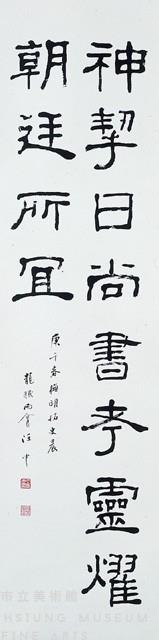 神挈曰尚書考靈燿
朝廷所宜
庚午春橅明拓史晨
龍坡雨盦汪中
市立美術館
HSIUNG MUSEUM
FINE ARTS